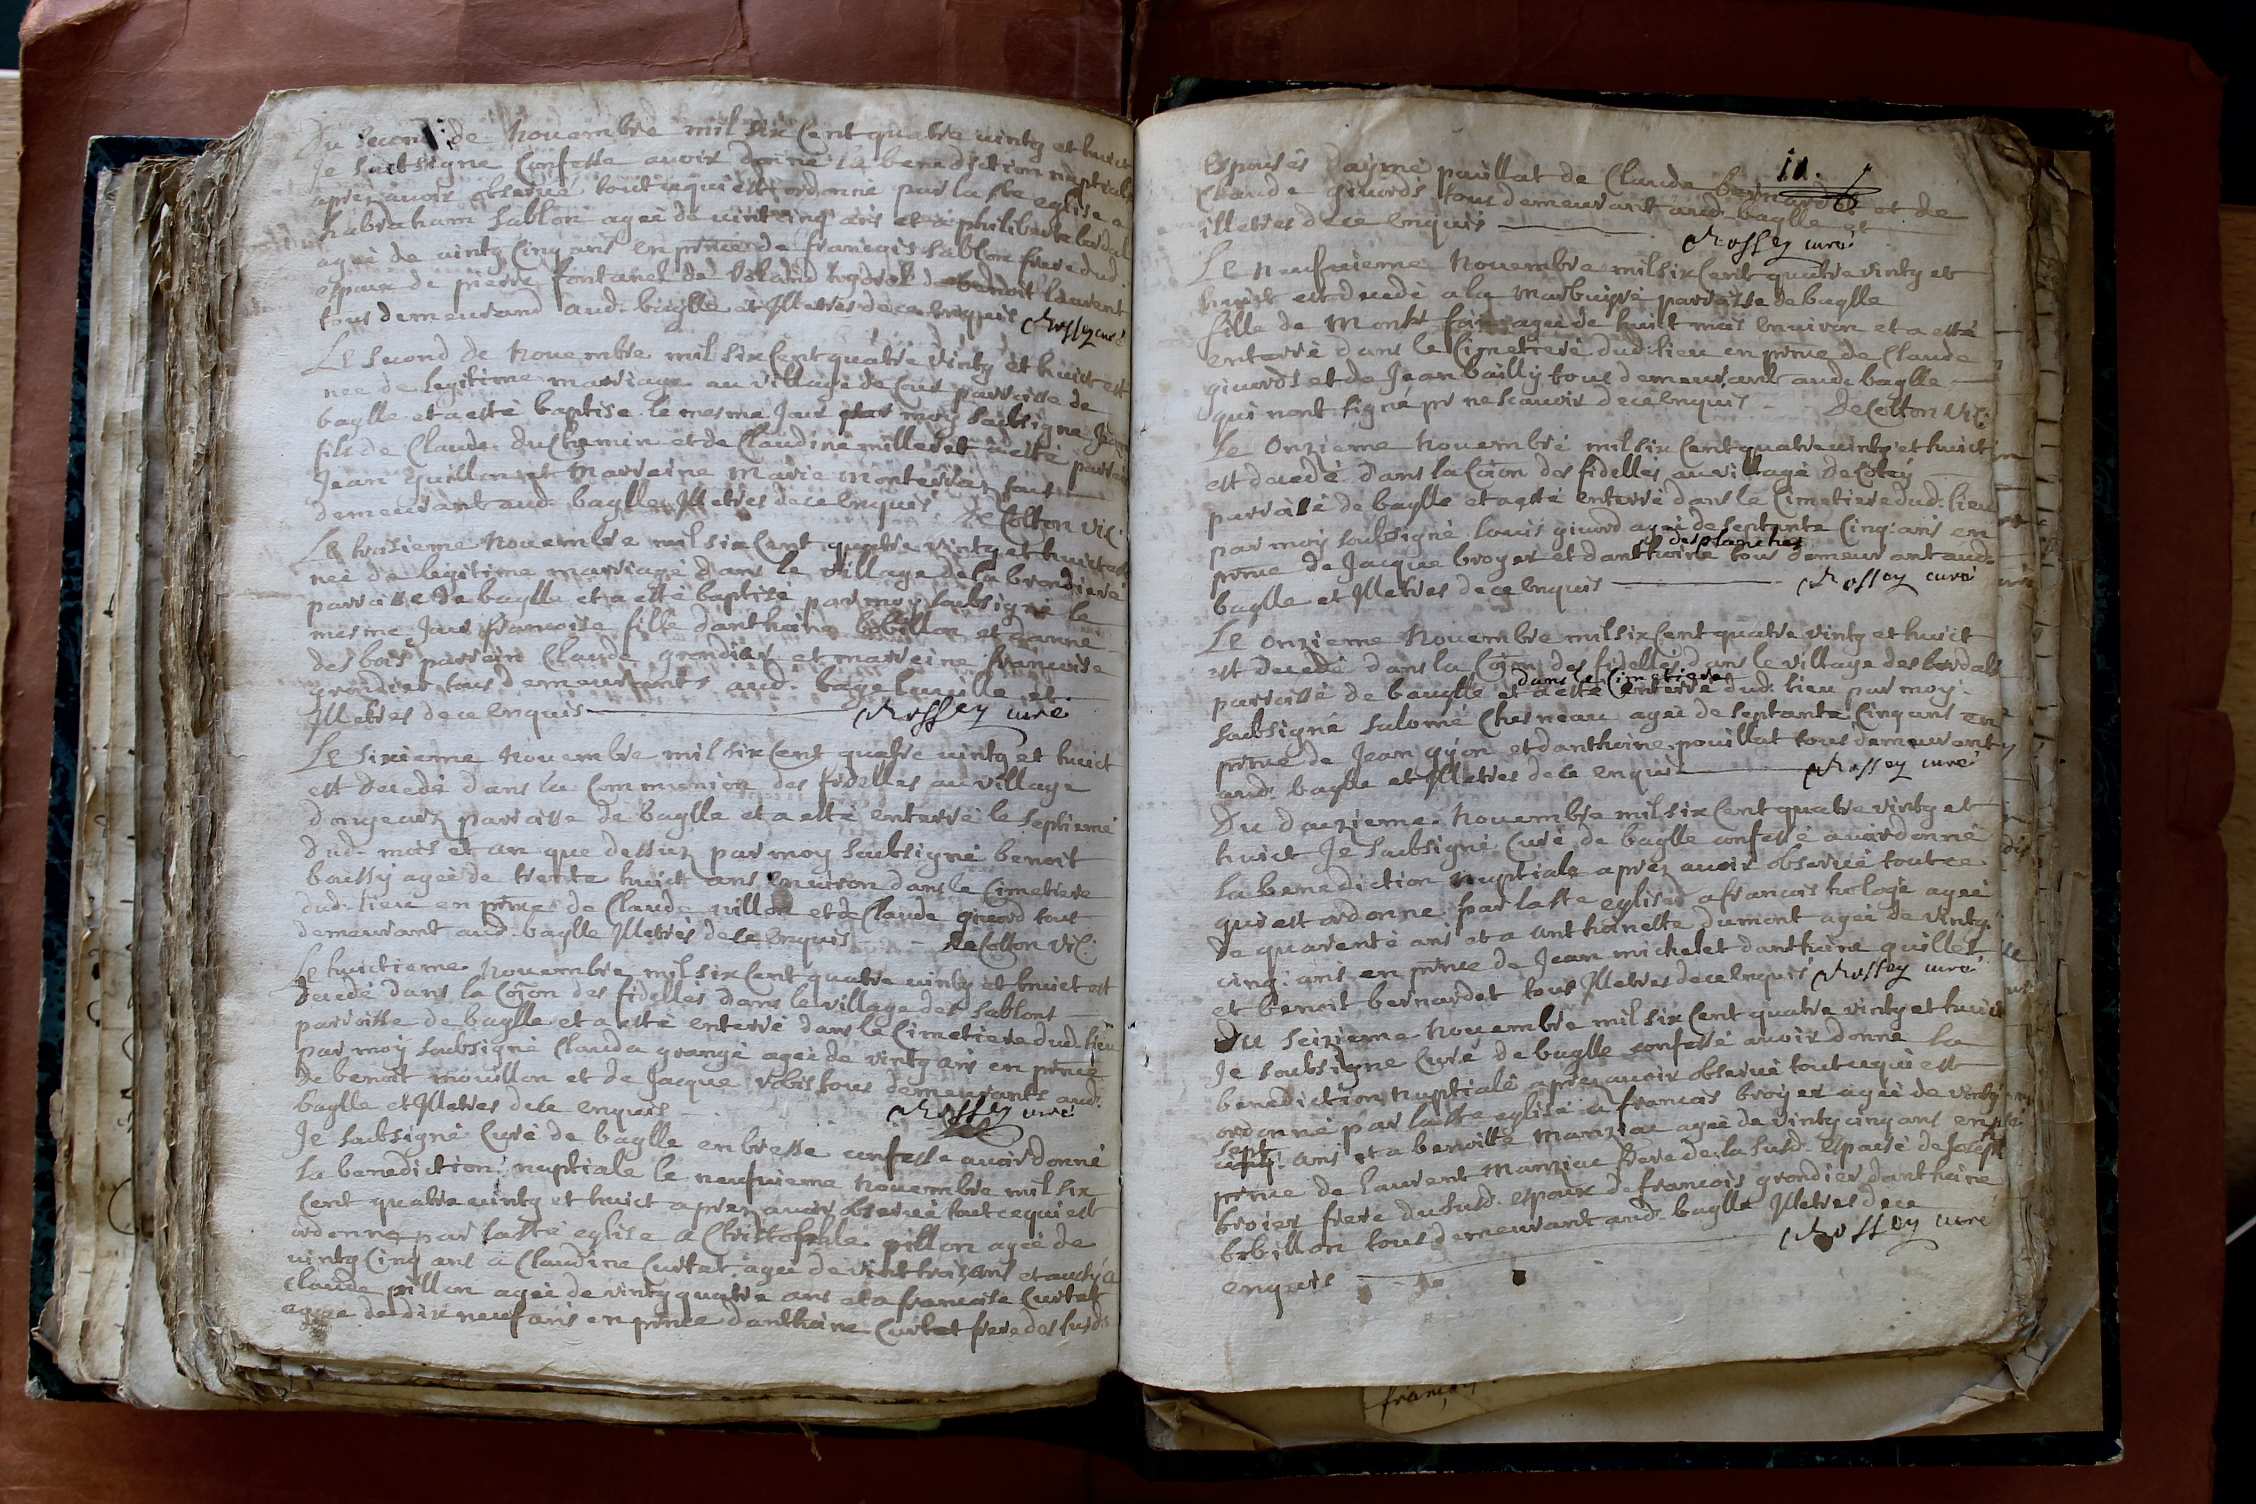 Du second de Nouembre mil six Cent quatre vintg et huict
Je subsigne Confesse auoir donne la benediction nuptiale
aprez auoir obserué tout ce qui est ordonne par la ste eglise a
habraham Sablon ageé de vint cinq ans et a philiberte
ageé de vintg Cinq ans en pnce de francois sablon frere dud.
espoux de pierre fontanel de benoit laurent
tous demeurand aud. baglle et Illetres de ce enquis Rossey curé
Le second de Nouembre mil six Cent quatre vintg et huict est
neé de legitime marriage au village de Cour parroisse de
baglle et a esté baptise le mesme Jour par moy soubsigne
fils de Claude duChemin et de Claudine milleret a esté parrain
Jean Guillon et Marreine Marie Monterraz tout
demeurant aud. baglle Illetres de ce enquis. DeColton Vic:
Le troisieme Nouembre mil six Cent quatre vintg et huict est
neé de legitime marriage dans le village de la brondiere
parroisse de baglle et a esté baptisé par moy soubsigné le
mesme Jour francoise fille danthoine bebillon et danne
des bois parrein Claude grondier et marreine francoise
grondier tous demeurants aud. bage la ville et
Illetres de ce enquis Rossey curé
Le sixieme Nouembre mil six Cent quatre vintg et huict
est decedé dans la Communion des fidelles au village
dongeurz parroisse de baglle et a esté enterré le septieme
dud. mois et an que dessus par moy soubsigné benoit
boussy ageé de trente huict ans enuiron dans le Cimetiere
dud. lieu en pnce de Claude villon et de Claude giuord tout
demeurant aud. baglle Illetres de ce enquis DeColton Vic:
Le huictieme Nouembre mil six Cent quatre vintg et huict est
decedé dans la Coñon des fidelles dans le village des sablons
parroisse de baglle et a esté enterré dans le Cimetiere dud. lieu
par moy soubsigné Clauda grangé ageé de vintg ans en pnce
de benoit mouillon et de Jacque robis tous demeurants aud.
baglle et Illetres de ce enquis Rossey curé
Je soubsigné Curé de baglle en bresse confesse auoir donné
La benediction nuptiale le neufuieme Nouembre mil six
Cent quatre vintg et huict aprez auoir obserué tout ce qui est
ordonne par la ste eglise a Christofle pillon ageé de
vintg Cinq ans a Claudine Curtat ageé de vint trois ans et aussy a
Claude pillon ageé de vintg quatre ans et a francoise Curtat
ageé de dix neuf ans en pnce danthoine Curtat frere des susd.
11.
Espouses daymé pauillat de Claude bernardet et de
Claude giuords tous demeurant aud. baglle et
illetres de ce enquis Rossey curé
Le Neufuieme Nouembre mil six Cent quatre vintg et
huict est decedé a la Marbuysé parroisse de baglle
fille de ageé de huict mois enuiron et a esté
enterré dans le Cimetiere dud. lieu en pnce de Claude
giuords et de Jean bailly tous demeurant aud. baglle
qui nont signé pr ne scauoir de ce enquis DeColton Vic:
Le Onzieme Nouembre mil six Cent quatre vintg et huict
est decedé dans la Coñon des fidelles au village de
parroisse de baglle et a esté enterré dans le Cimetiere dud. lieu
par moy soubsigné louis giuord ageé de septante Cinq ans en
desplanches
pnce de Jacque broyer et danthoine tous demeurant aud.
baglle et Illetres de ce enquis Rossey curé
Le Onzieme Nouembre mil six Cent quatre vintg et huict
est decedé dans la Coñon des fidelles dans le village des bordals
dans le Cimetiere
parroisse de baglle et a esté enterré dud. lieu par moy
soubsigné salomé Chesneau ageé de septante Cinq ans en
pnce de Jean gyon et danthoine pouillat tous demeurantz
aud. baglle et Illetres de ce enquis Rossey curé
Du douzieme Nouembre mil six Cent quatre vintg et
huict Je soubsigné Curé de baglle confesse auoir donné
La benediction nuptiale aprez auoir obserué tout ce
qui est ordonne par la ste eglise a francois hologé ageé
de quarente ans et a anthoinette dumont ageé de vintg
cinq ans en pnce de Jean michel et danthoine quillet
et benoit bernardet tous Illetres de ce enquis Rossey curé
Du seizieme Nouembre mil six Cent quatre vintg et huict
Je soubsigne Curé de baglle confesse auoir donne La
benediction nuptiale aprez auoir obserué tout ce qui est
ordonné par la ste eglise a francois broyer ageé de vintg
sept
cinq ans et a benoitte Manziac ageé de vintg cinq ans en
pnce de laurent Manziac frere de la susd. espousé de Joseph
broier frere du susd. espoux de francois grondier danthoine
bebillon tous demeurant aud. baglle Illetres de ce
enquis Rossey curé